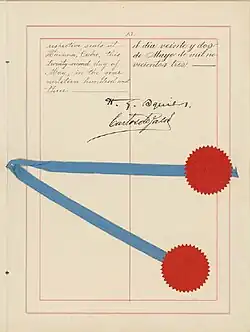 respective seals at
Havana, Cuba, this
twenty-second day of
May, in the year
nineteen hundred and
three.
el dia veinte y dos
de Mayo de mil no-
vecientos tres.
H. G. Squiers.
Carlos de Zaldo